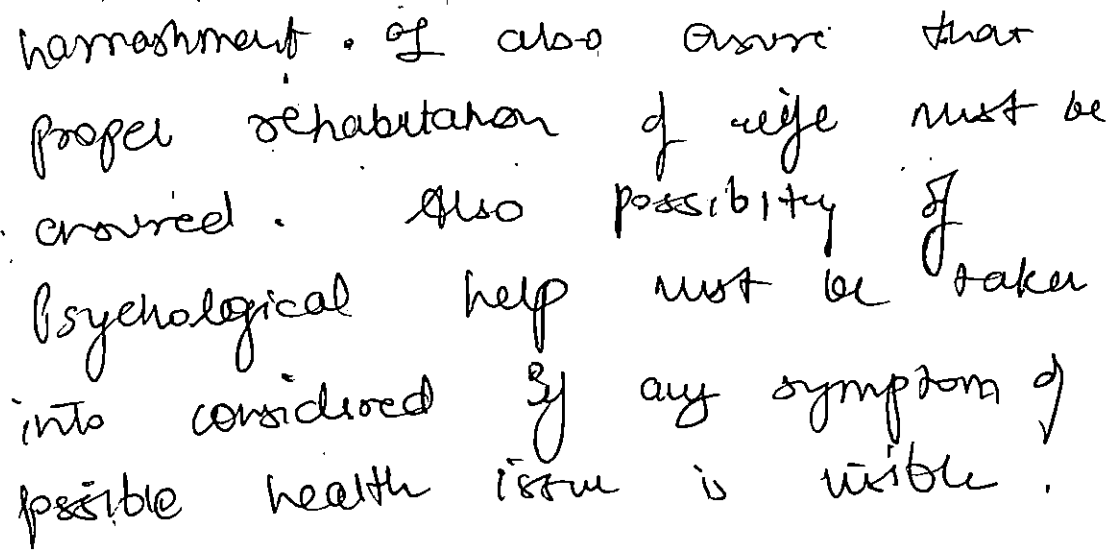 harrashment. I also ensure that
proper rehabitation of wife must be
ensured. Also possibity of
Psychological help must be taken
into considered If any symptom of
possible health issue is visible.